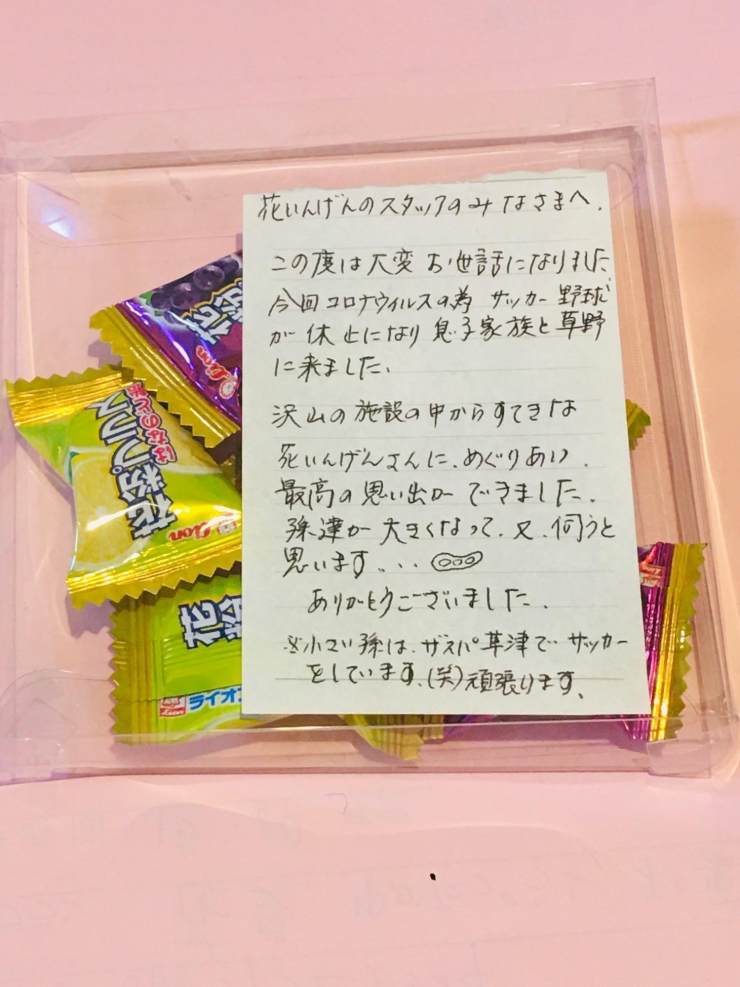 花いんげんのスタッフのみなさまへ.
この度は大変お世話になりました.
今回コロナウイルスの為 サッカー 野球
が休止になり息子家族と草野
に来ました.
沢山の施設の中からすてきな
花いんげんさんに.めぐりあい.
最高の思い出ができました.
孫達が大きくなって.又.伺うと
思います...
ありがとうございました.
※小さい孫は.ザスパ草津でサッカー
をしています.(笑)頑張ります.
花粉
Lion
はなのど飴
花粉プラス
Lion
花粉
Lion
ライオ